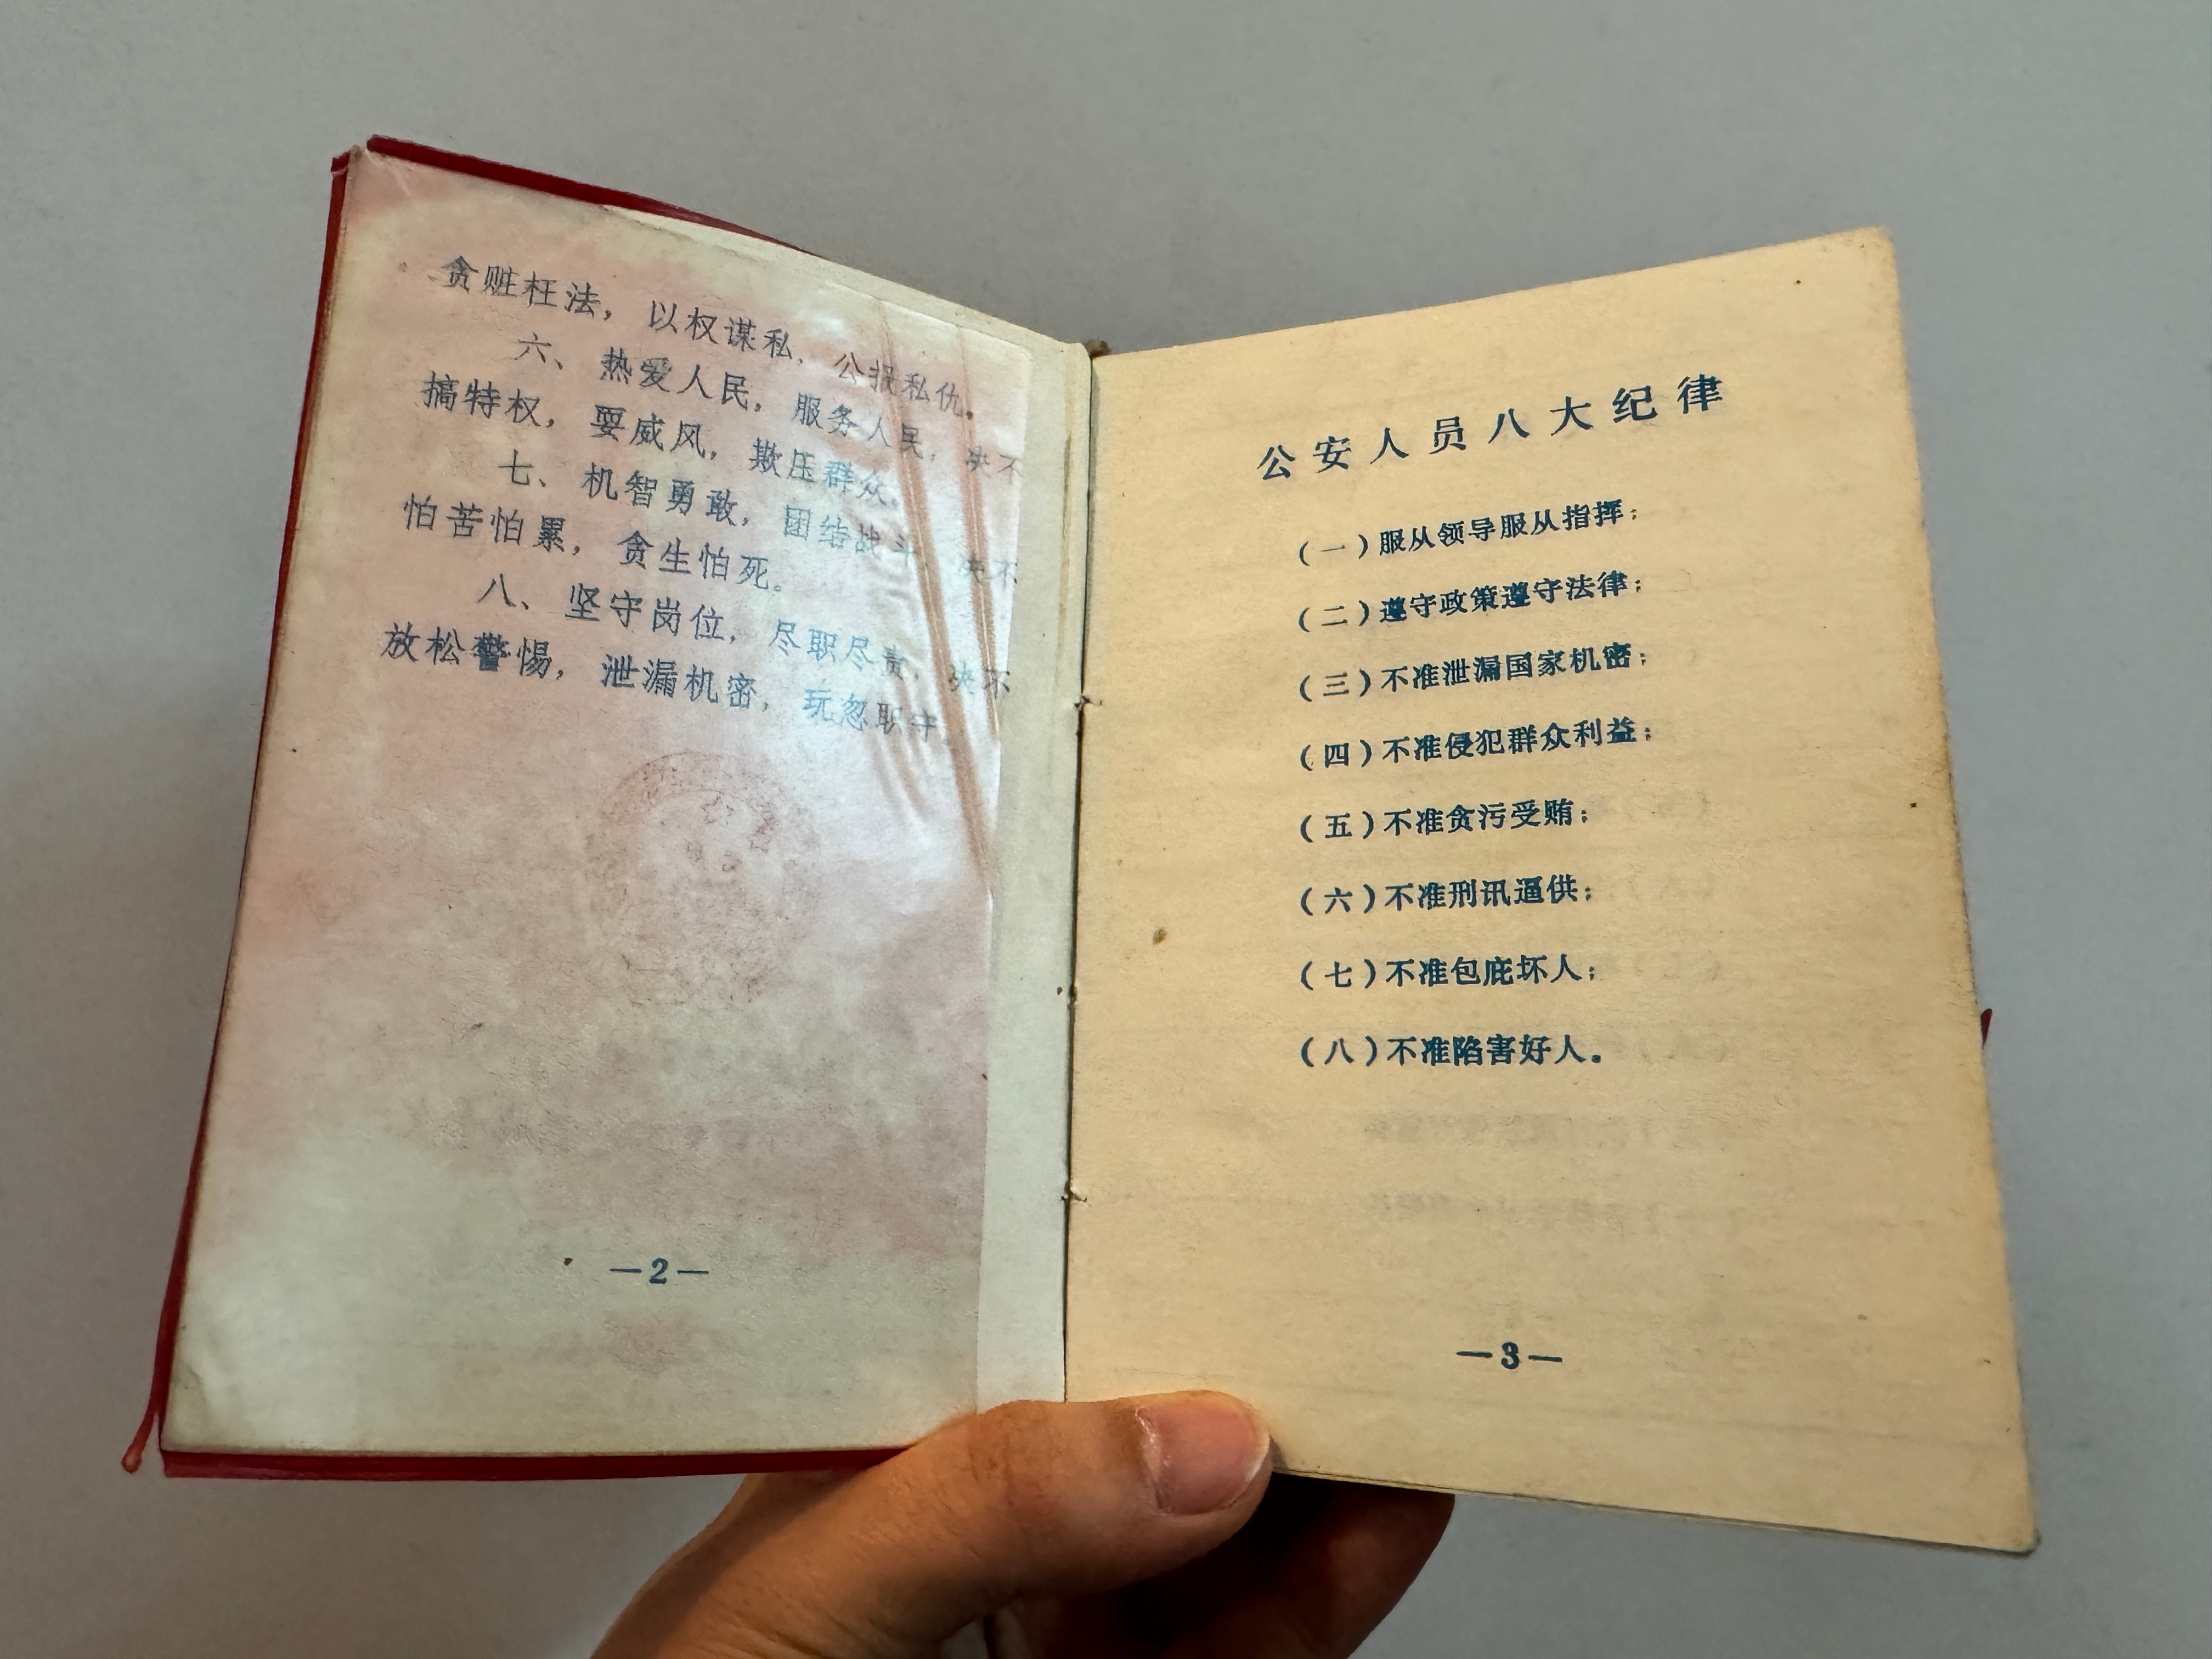 贪赃枉法，以权谋私，公报私仇。
六、热爱人民，服务人民，决不
搞特权，耍威风，欺压群众。
七、机智勇敢，团结战斗，决不
怕苦怕累，贪生怕死。
八、坚守岗位，尽职尽责，决不
放松警惕，泄漏机密，玩忽职守。
—2—
公安人员八大纪律
（一）服从领导服从指挥；
（二）遵守政策遵守法律；
（三）不准泄漏国家机密；
（四）不准侵犯群众利益；
（五）不准贪污受贿；
（六）不准刑讯逼供；
（七）不准包庇坏人；
（八）不准陷害好人。
—3—